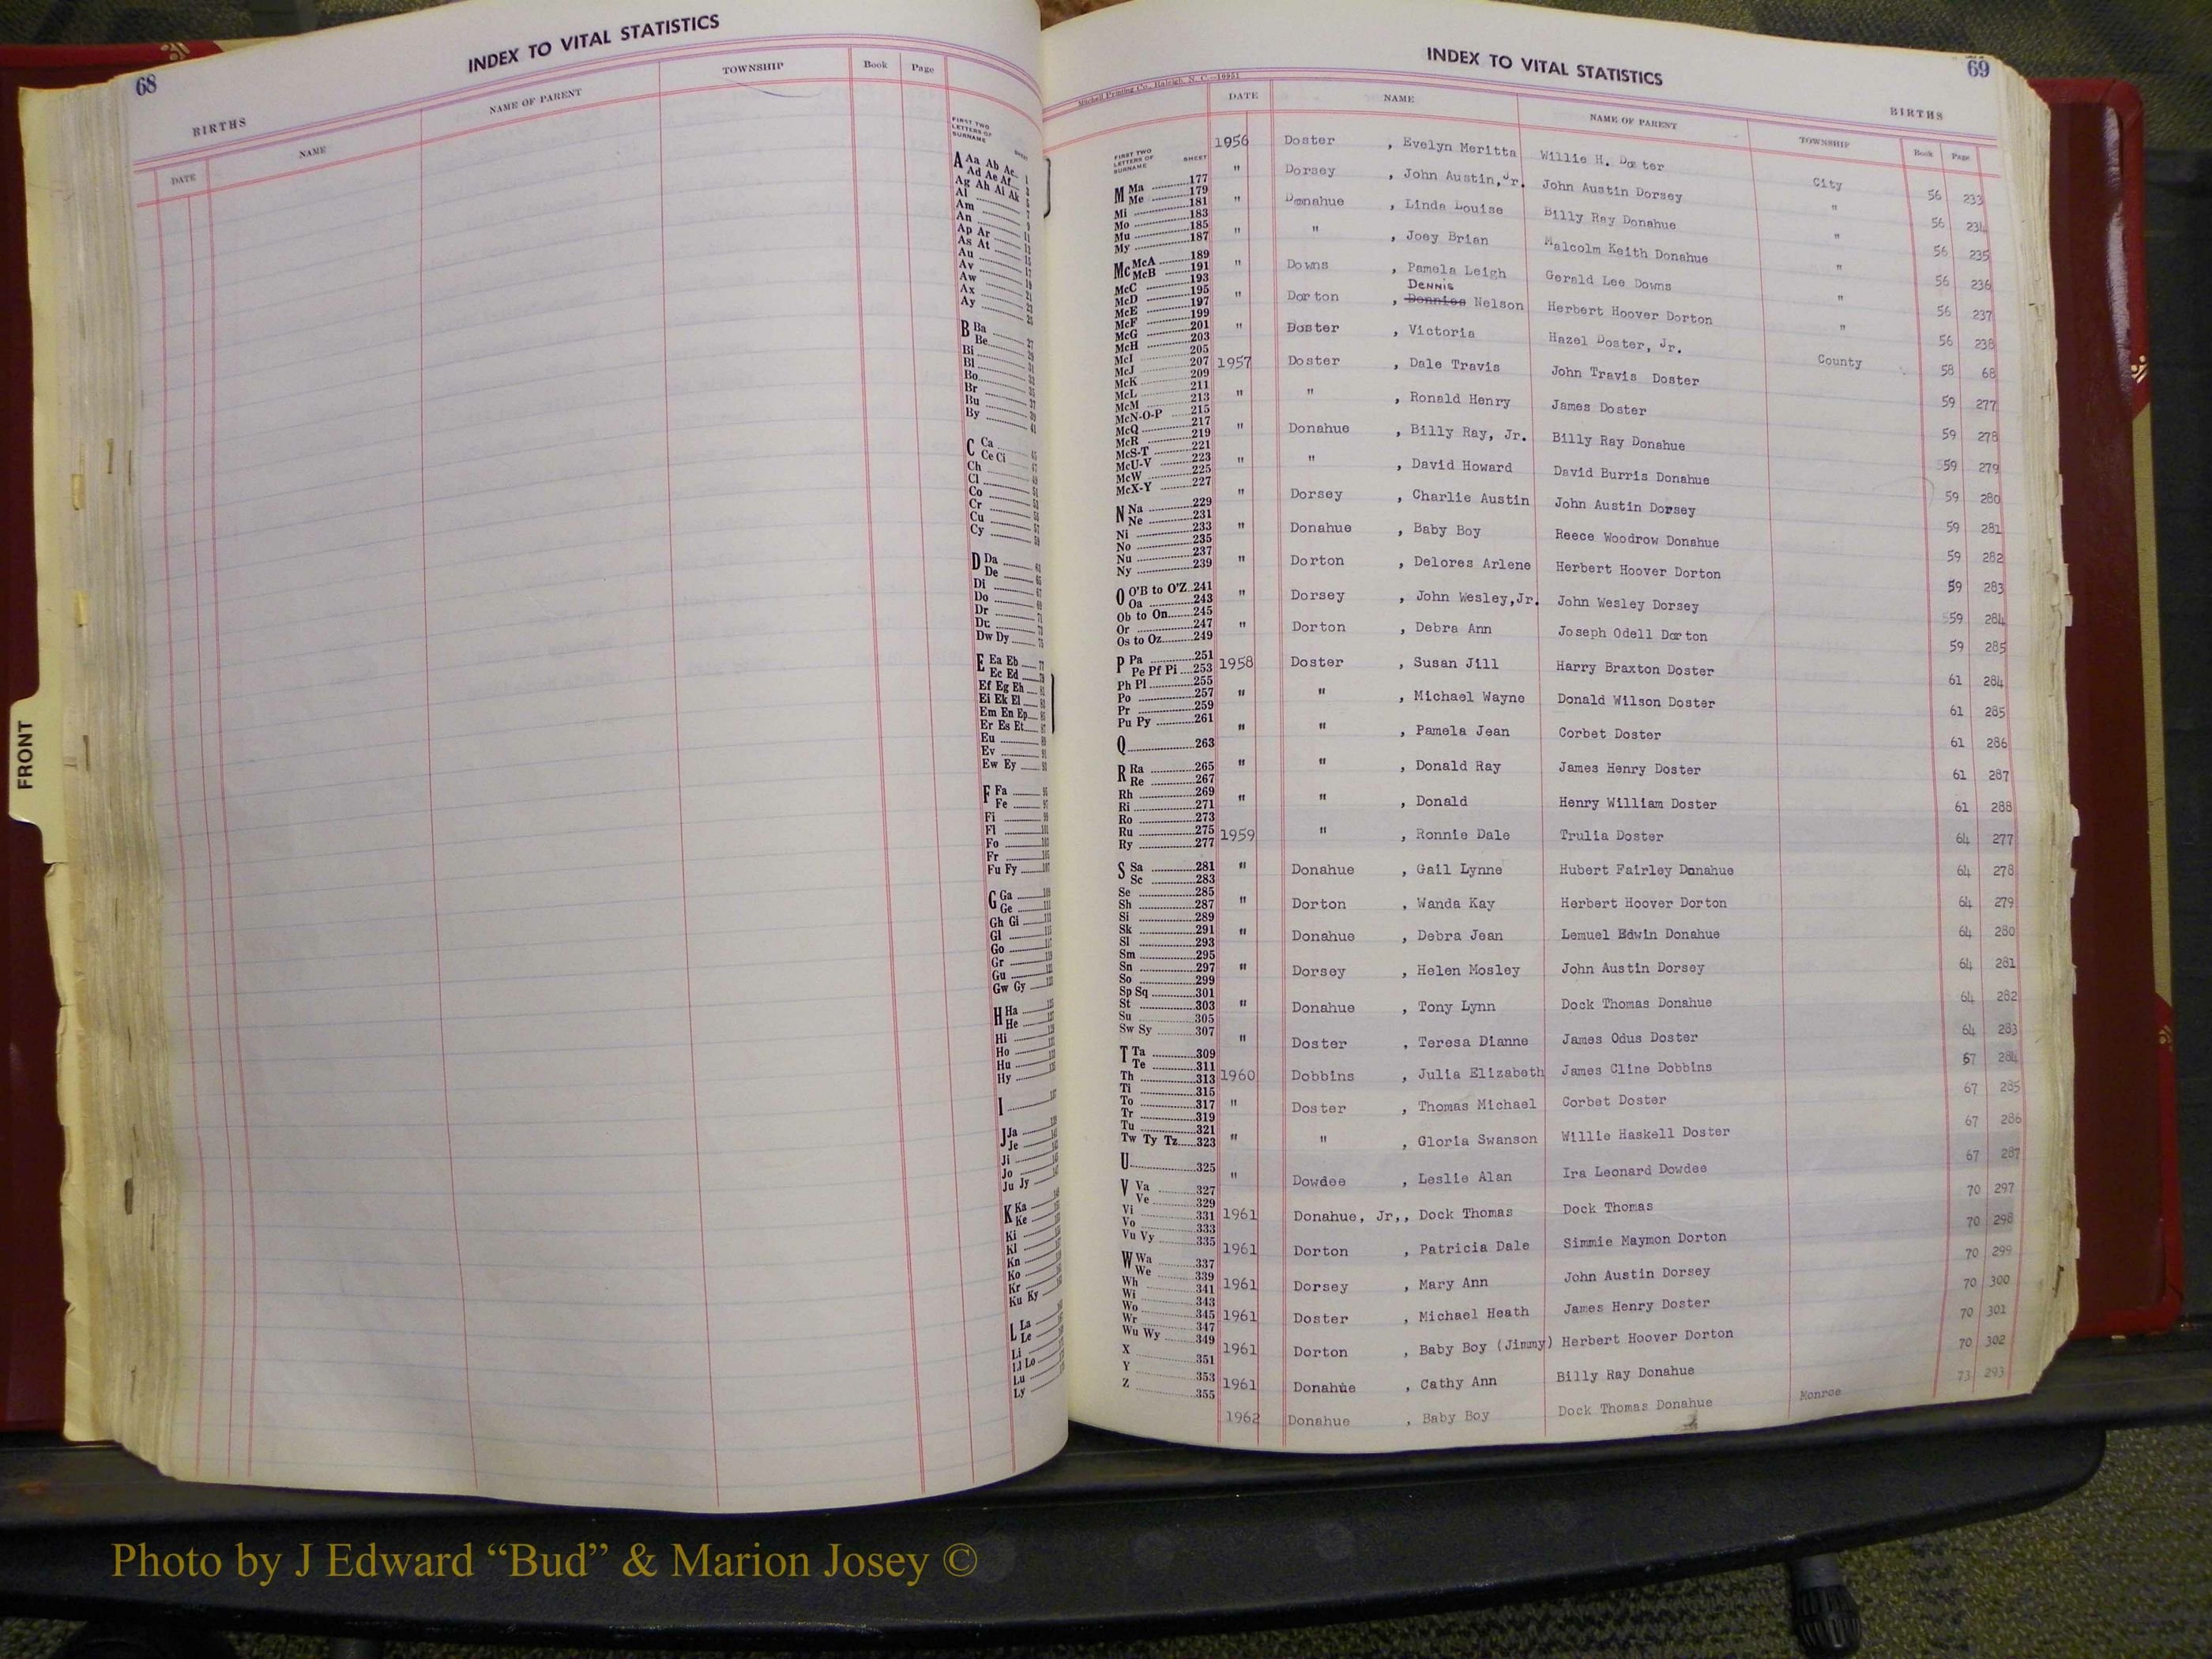 68
INDEX TO VITAL STATISTICS
BIRTHS
DATE NAME NAME OF PARENT TOWNSHIP Book Page
FIRST TWO LETTERS OF SURNAME SHEET
A Aa Ab Ac
Ad Ae Af
Ag Ah Ai Ak
Al
Am
An
Ap Ar
As At
Au
Av
Aw
Ax
Ay
B Ba
Be
Bi
Bl
Bo
Br
Bu
By
C Ca
Ce Ci
Ch
Cl
Co
Cr
Cu
Cy
D Da
De
Di
Do
Dr
Du
Dw Dy
E Ea Eb
Ec Ed
Ef Eg Eh
Ei Ek El
Em En Ep
Er Es Et
Eu
Ev
Ew Ey
F Fa
Fe
Fi
Fl
Fo
Fr
Fu Fy
G Ga
Ge
Gh Gi
Gl
Go
Gr
Gu
Gw Gy
H Ha
He
Hi
Ho
Hu
Hy
I
J Ja
Je
Ji
Jo
Ju Jy
K Ka
Ke
Ki
Kl
Kn
Ko
Kr
Ku Ky
L La
Le
Li
Ll Lo
Lu
Ly
FRONT
INDEX TO VITAL STATISTICS
69
Mitchell Printing Co., Raleigh, N. C.—10951
BIRTHS
DATE NAME NAME OF PARENT TOWNSHIP Book Page
FIRST TWO LETTERS OF SURNAME SHEET
M Ma 177
Me 179
Mi 181
Mo 183
Mu 185
My 187
Mc McA 189
McB 191
McC 193
McD 195
McE 197
McF 199
McG 201
McH 203
McI 205
McJ 207
McK 209
McL 211
McM 213
McN-O-P 215
McQ 217
McR 219
McS-T 221
McU-V 223
McW 225
McX-Y 227
N Na 229
Ne 231
Ni 233
No 235
Nu 237
Ny 239
O O'B to O'Z 241
Oa 243
Ob to On 245
Or 247
Os to Oz 249
P Pa 251
Pe Pf Pi 253
Ph Pl 255
Po 257
Pr 259
Pu Py 261
Q 263
R Ra 265
Re 267
Rh 269
Ri 271
Ro 273
Ru 275
Ry 277
S Sa 281
Sc 283
Se 285
Sh 287
Si 289
Sk 291
Sl 293
Sm 295
Sn 297
So 299
Sp Sq 301
St 303
Su 305
Sw Sy 307
T Ta 309
Te 311
Th 313
Ti 315
To 317
Tr 319
Tu 321
Tw Ty Tz 323
U 325
V Va 327
Ve 329
Vi 331
Vo 333
Vu Vy 335
W Wa 337
We 339
Wh 341
Wi 343
Wo 345
Wr 347
Wu Wy 349
X 351
Y 353
Z 355
1956 Doster , Evelyn Meritta Willie H. Doster City 56 233
" Dorsey , John Austin, Jr. John Austin Dorsey " 56 234
" Donahue , Linda Louise Billy Ray Donahue " 56 235
" " , Joey Brian Malcolm Keith Donahue " 56 236
" Downs , Pamela Leigh Gerald Lee Downs " 56 237
DENNIS
" Dorton , Donnies Nelson Herbert Hoover Dorton " 56 238
" Doster , Victoria Hazel Doster, Jr. County 58 68
1957 Doster , Dale Travis John Travis Doster 59 277
" " , Ronald Henry James Doster 59 278
" Donahue , Billy Ray, Jr. Billy Ray Donahue 59 279
" " , David Howard David Burris Donahue 59 280
" Dorsey , Charlie Austin John Austin Dorsey 59 281
" Donahue , Baby Boy Reece Woodrow Donahue 59 282
" Dorton , Delores Arlene Herbert Hoover Dorton 59 283
" Dorsey , John Wesley,Jr. John Wesley Dorsey 59 284
" Dorton , Debra Ann Joseph Odell Dorton 59 285
1958 Doster , Susan Jill Harry Braxton Doster 61 284
" " , Michael Wayne Donald Wilson Doster 61 285
" " , Pamela Jean Corbet Doster 61 286
" " , Donald Ray James Henry Doster 61 287
" " , Donald Henry William Doster 61 288
1959 " , Ronnie Dale Trulia Doster 64 277
" Donahue , Gail Lynne Hubert Fairley Donahue 64 278
" Dorton , Wanda Kay Herbert Hoover Dorton 64 279
" Donahue , Debra Jean Lemuel Edwin Donahue 64 280
" Dorsey , Helen Mosley John Austin Dorsey 64 281
" Donahue , Tony Lynn Dock Thomas Donahue 64 282
" Doster , Teresa Dianne James Odus Doster 64 283
1960 Dobbins , Julia Elizabeth James Cline Dobbins 67 284
" Doster , Thomas Michael Corbet Doster 67 285
" " , Gloria Swanson Willie Haskell Doster 67 286
" Dowdee , Leslie Alan Ira Leonard Dowdee 67 287
1961 Donahue, Jr,, Dock Thomas Dock Thomas 70 297
1961 Dorton , Patricia Dale Simmie Maymon Dorton 70 298
1961 Dorsey , Mary Ann John Austin Dorsey 70 299
1961 Doster , Michael Heath James Henry Doster 70 300
1961 Dorton , Baby Boy (Jimmy) Herbert Hoover Dorton 70 301
1961 Donahue , Cathy Ann Billy Ray Donahue 70 302
1962 Donahue , Baby Boy Dock Thomas Donahue Monroe 73 293
Photo by J Edward “Bud” & Marion Josey ©